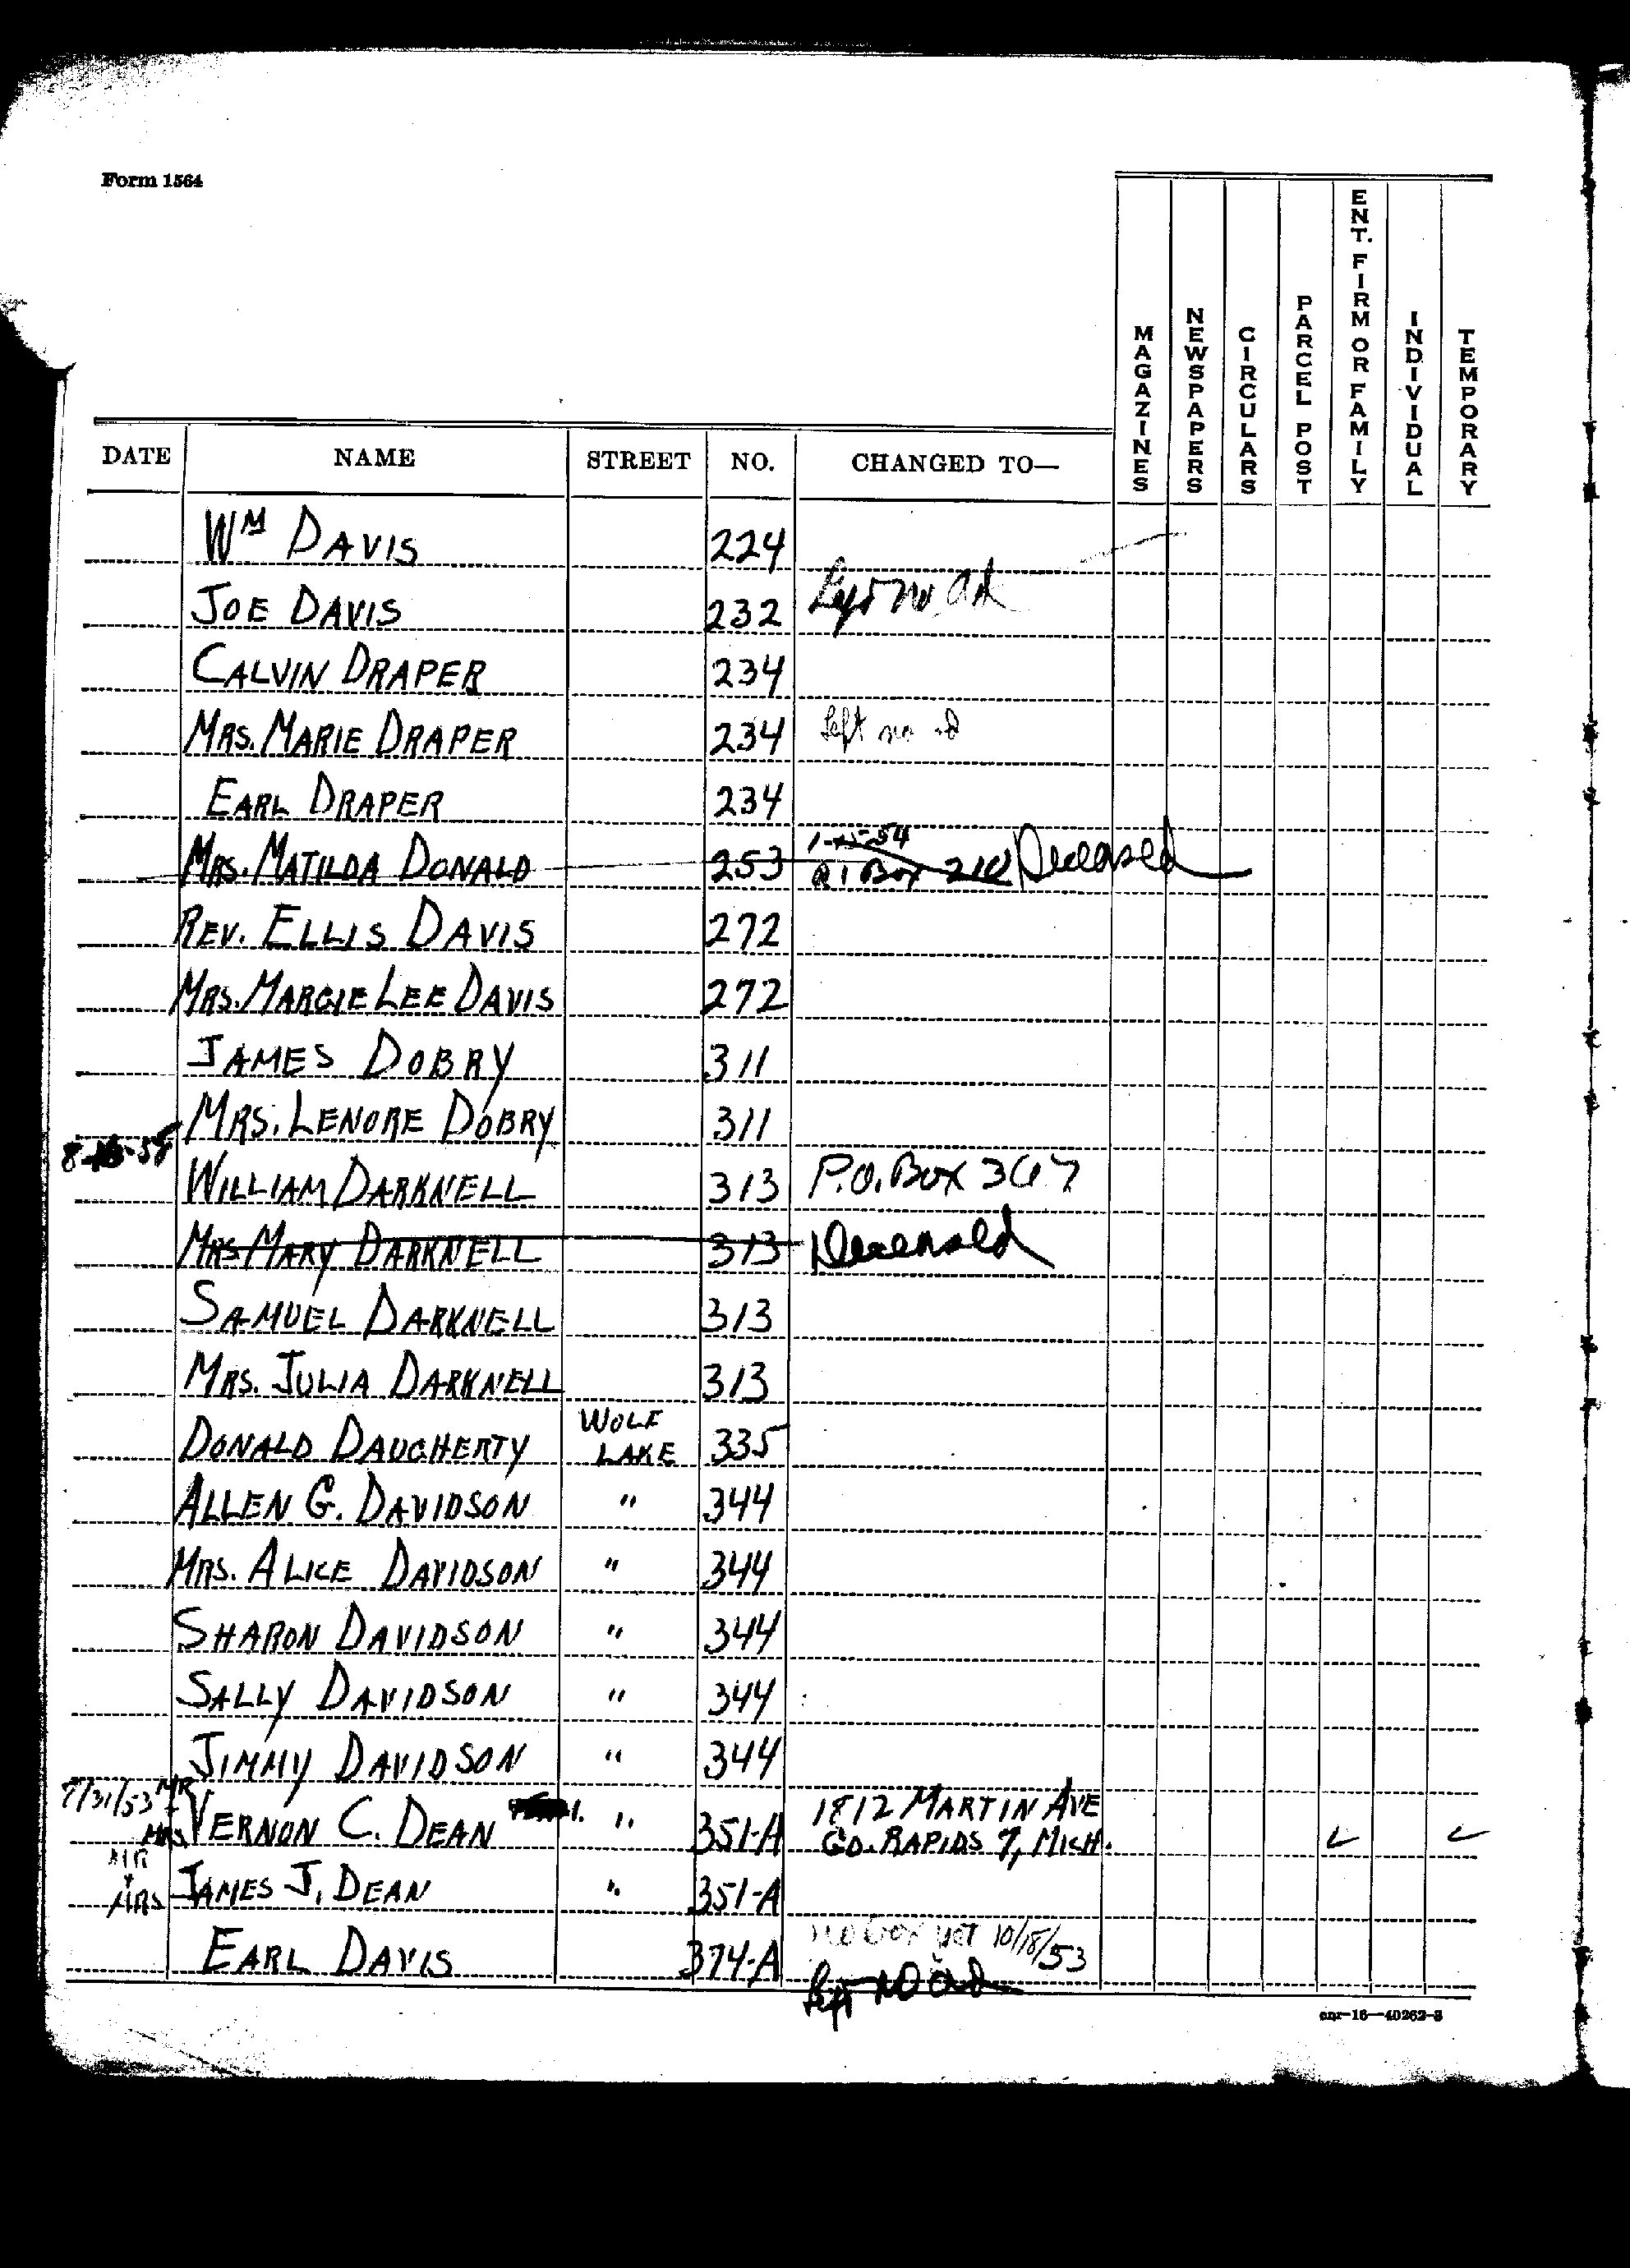 Form 1564
MAGAZINES NEWSPAPERS CIRCULARS PARCEL POST ENT. FIRM OR FAMILY INDIVIDUAL TEMPORARY
DATE NAME STREET NO. CHANGED TO—
WM DAVIS 224
JOE DAVIS 232 Left no ad
CALVIN DRAPER 234
MRS. MARIE DRAPER 234 Left no ad
EARL DRAPER 234
MRS. MATILDA DONALD 253 1-15-54 R 1 Box 210 Deceased
REV. ELLIS DAVIS 272
MRS. MARGIE LEE DAVIS 272
JAMES DOBRY 311
MRS. LENORE DOBRY 311
WILLIAM DARKNELL 313 P.O. Box 367
MRS MARY DARKNELL 313 Deceased
SAMUEL DARKNELL 313
MRS. JULIA DARKNELL 313
DONALD DAUGHERTY WOLF LAKE 335
ALLEN G. DAVIDSON " 344
MRS. ALICE DAVIDSON " 344
SHARON DAVIDSON " 344
SALLY DAVIDSON " 344
JIMMY DAVIDSON " 344
7/31/53 MR + MRS VERNON C. DEAN " 351-A 1812 MARTIN AVE
GD. RAPIDS 7, MICH. ✓ ✓
MR + MRS JAMES J. DEAN " 351-A
EARL DAVIS 374-A no box yet 10/18/53
Left no ad